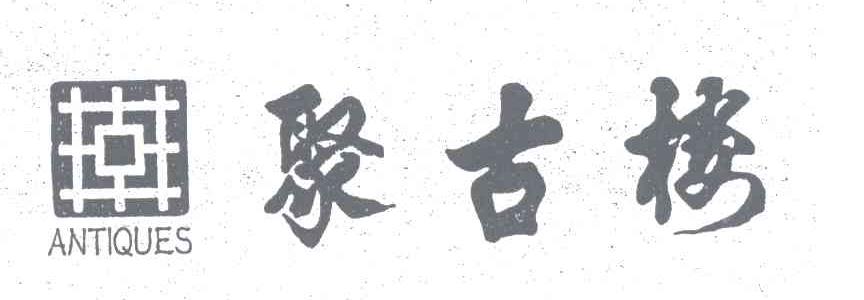 聚古楼
ANTIQUES